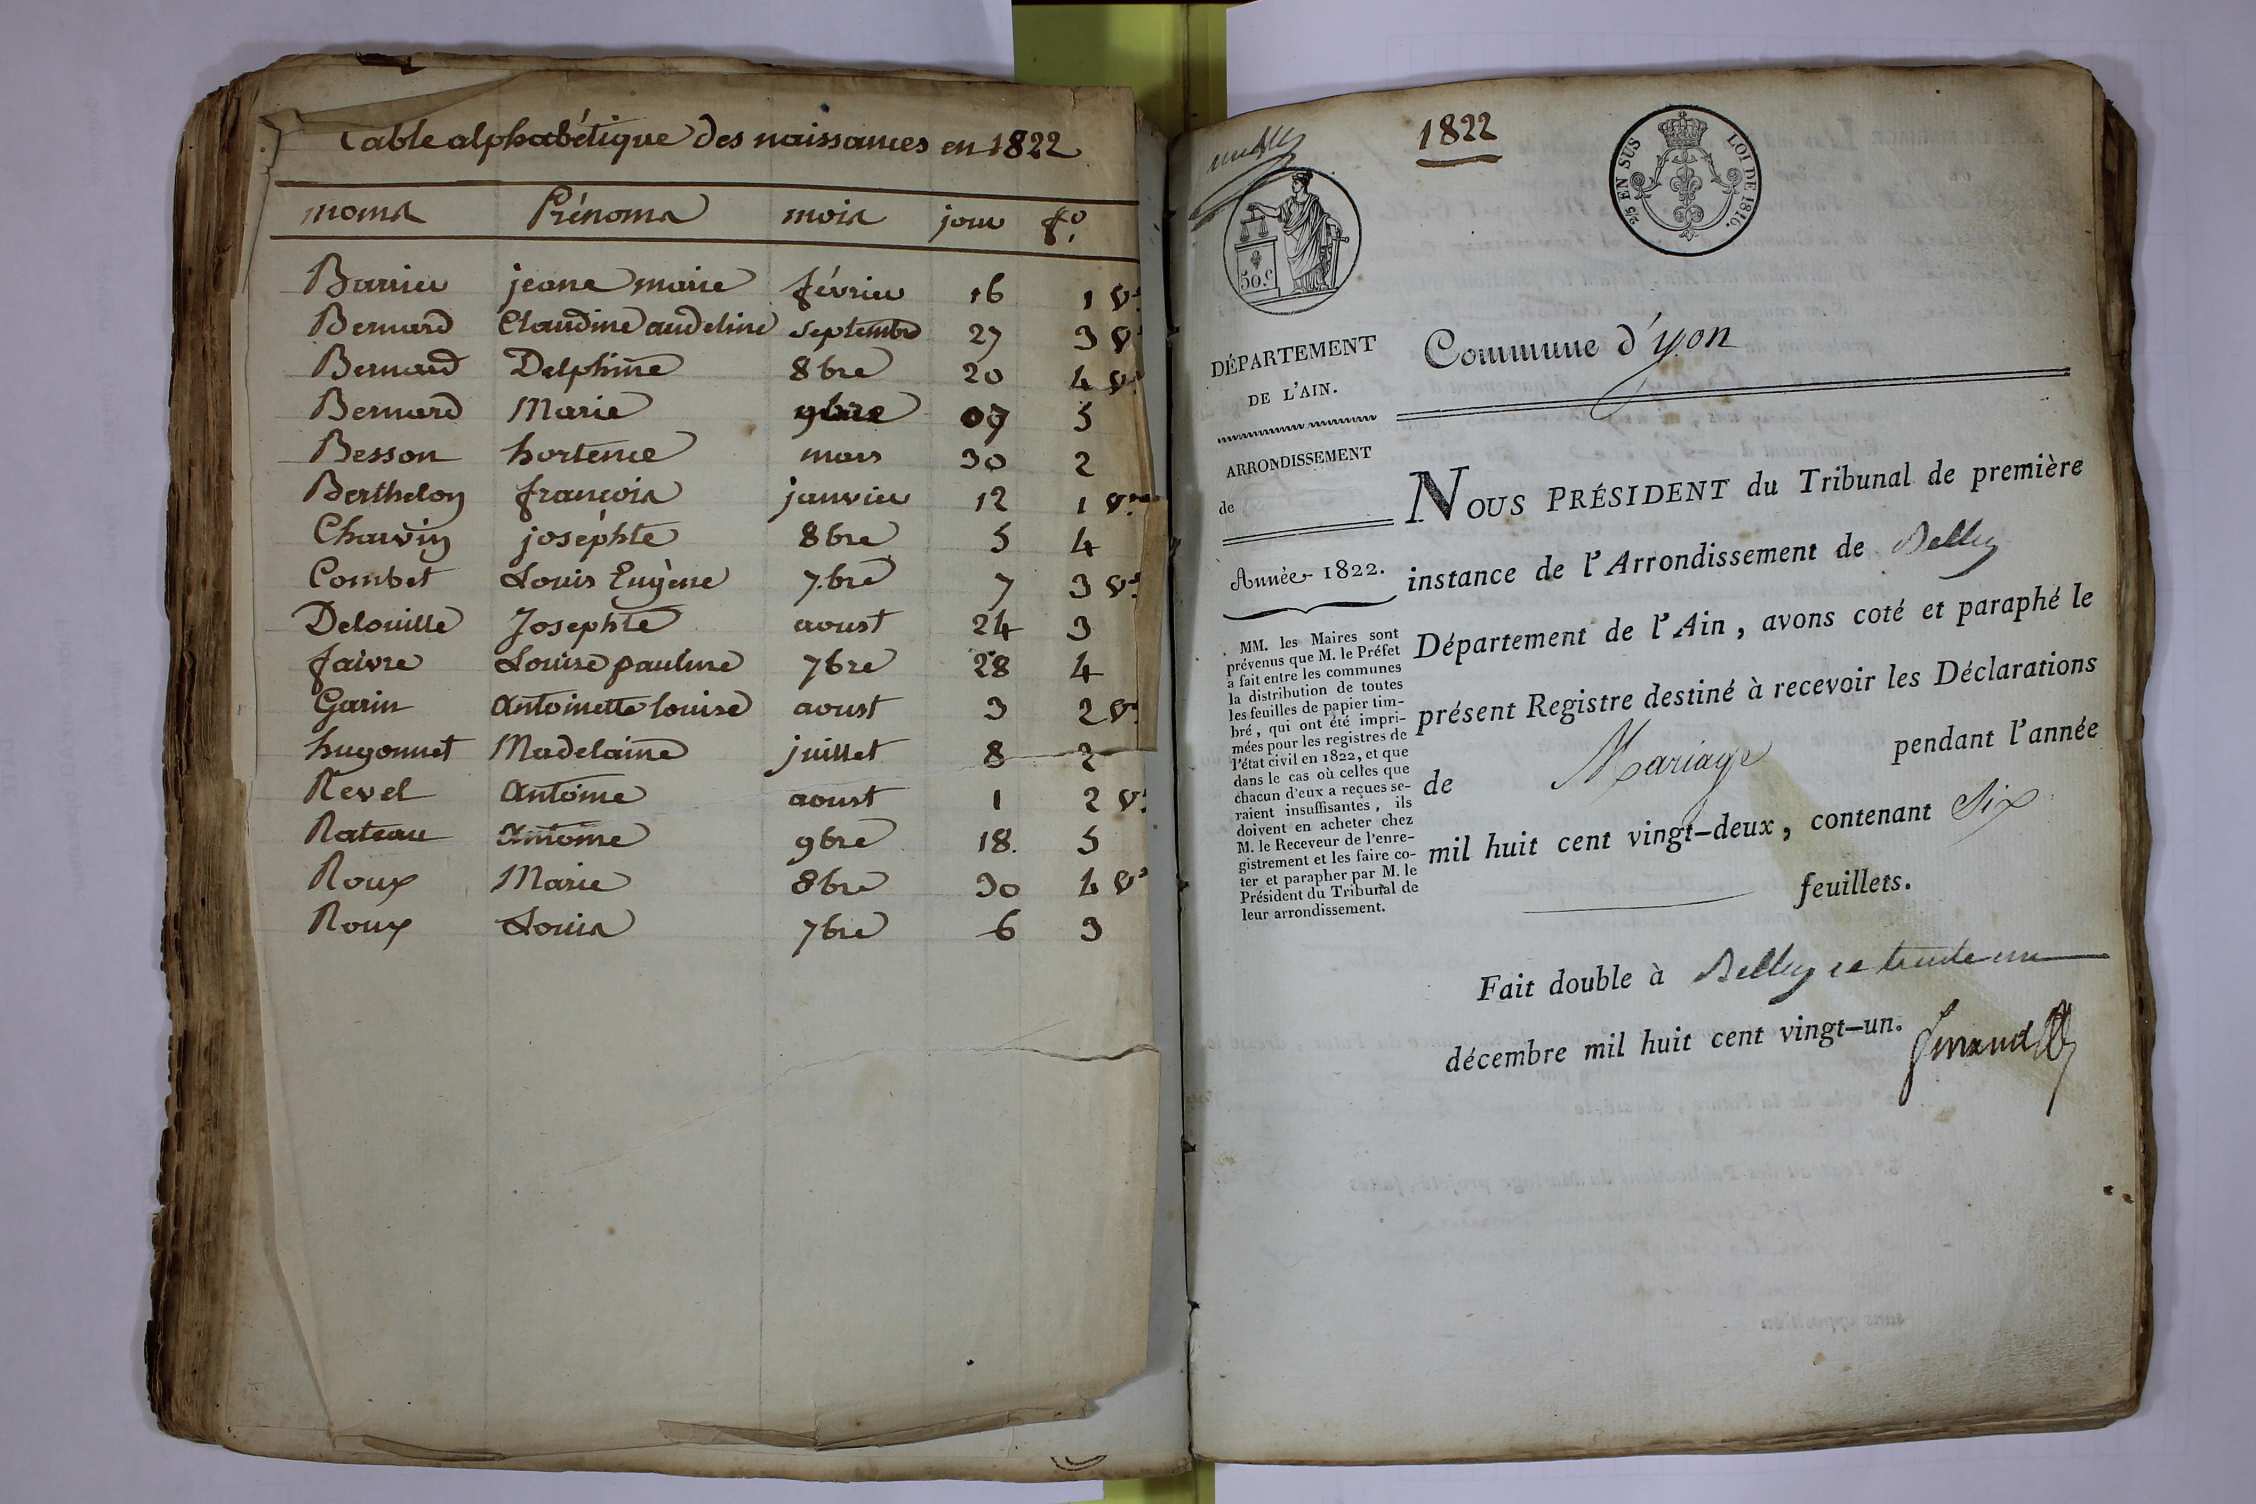 Table alphabétique des naissances en 1822
noms Prénoms mois jour fo.
Barrieu jeane marie février 16 1 vo.
Bernard Claudine audeline septembre 27 3 vo
Bernard Delphine 8bre 20 4 vo
Bernard Marie 9bre 09 5
Besson hortence mars 30 2
Berthelon françois janvier 12 1 vo.
Chavin joséphte 8bre 5 4
Combet Louis Eugène 7.bre 7 3 vo.
Delouille Josephte aoust 24 3
faivre Louise pauline 7bre 28 4
Garin Antoinette louise aoust 3 2 vo.
hugonnet Madelaine juillet 8 2
Revel Antoine aoust 1 2 vo.
Rateau Antoine 9bre 18. 5
Roux Marie 8bre 30 4 vo
Roux Louis 7bre 6 3
1822
2/5 EN SUS LOI DE 1816.
50.c
DÉPARTEMENT
DE L'AIN.
ARRONDISSEMENT
de
Année 1822.
MM. les Maires sont
prévenus que M. le Préfet
a fait entre les communes
la distribution de toutes
les feuilles de papier tim-
bré, qui ont été impri-
mées pour les registres de
l'état civil en 1822, et que
dans le cas où celles que
chacun d'eux a reçues se-
raient insuffisantes, ils
doivent en acheter chez
M. le Receveur de l'enre-
gistrement et les faire co-
ter et parapher par M. le
Président du Tribunal de
leur arrondissement.
Commune d'yon
NOUS PRÉSIDENT du Tribunal de première
instance de l'Arrondissement de Belley
Département de l'Ain, avons coté et paraphé le
présent Registre destiné à recevoir les Déclarations
de Mariage pendant l'année
mil huit cent vingt-deux, contenant Six
feuillets.
Fait double à Belley ce trente un
décembre mil huit cent vingt-un.